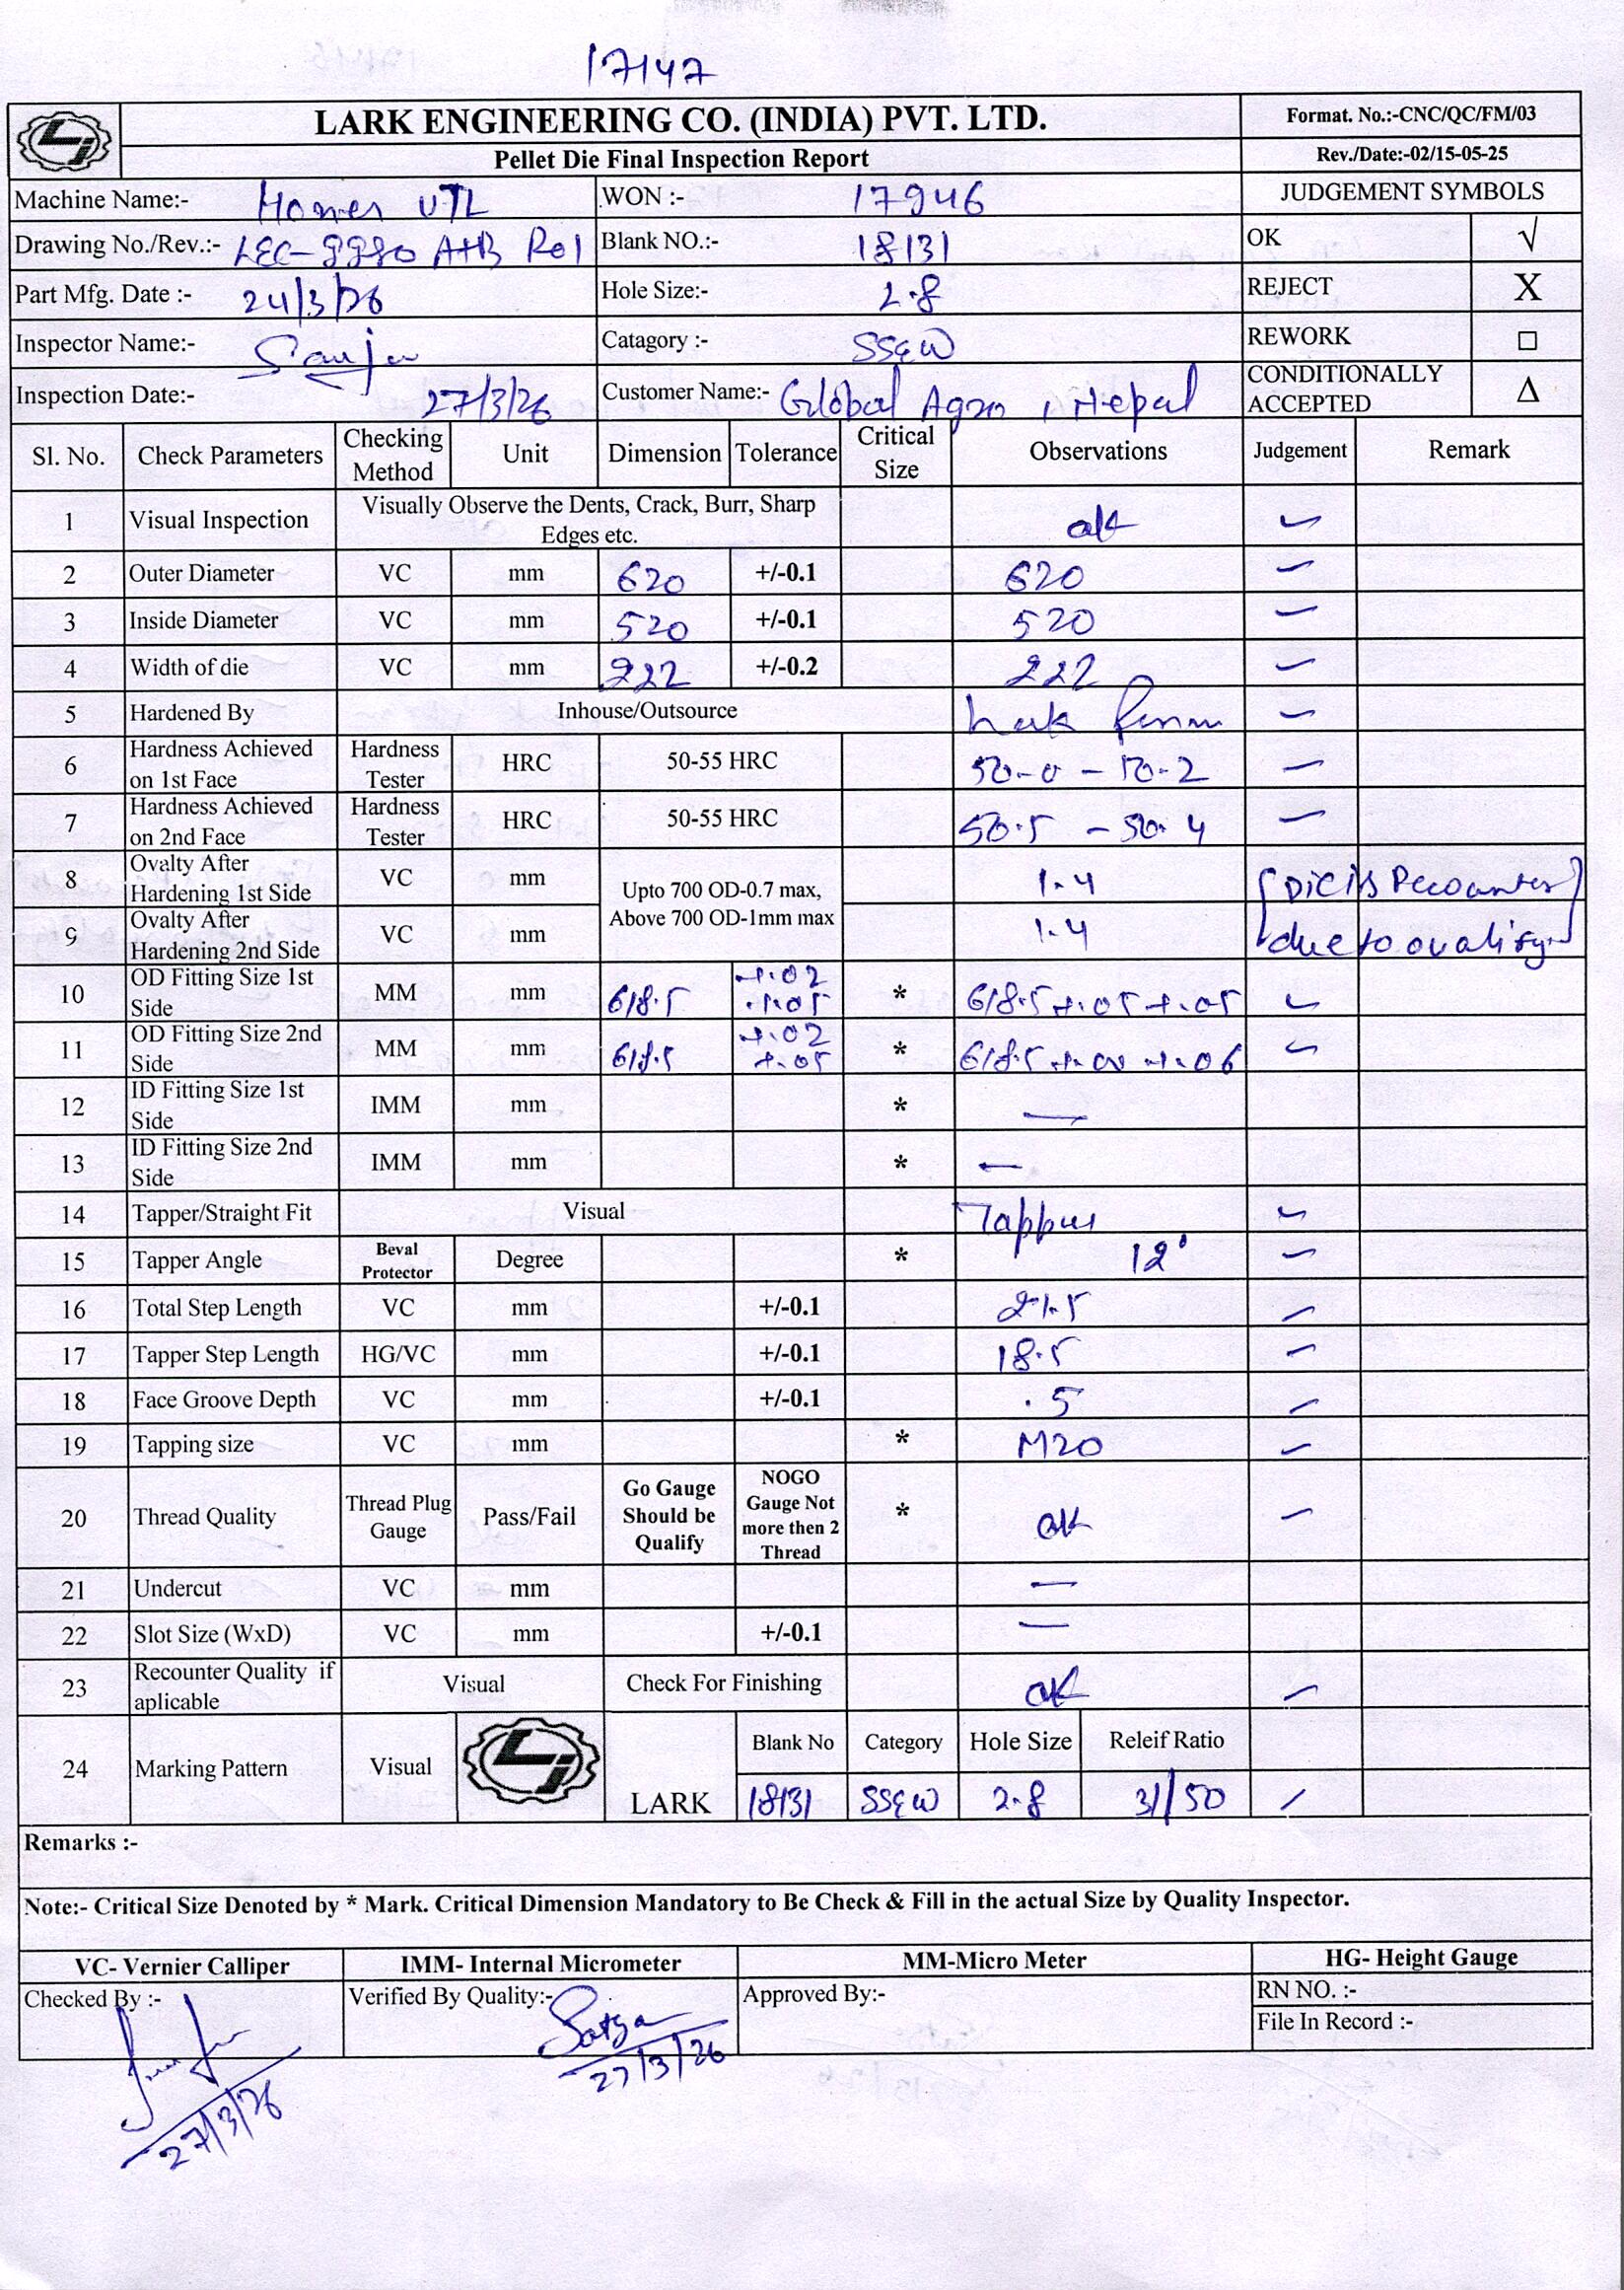 17147
LARK ENGINEERING CO. (INDIA) PVT. LTD.
Format. No.:-CNC/QC/FM/03
Pellet Die Final Inspection Report
Rev./Date:-02/15-05-25
Machine Name:- VTL WON :- 17946 JUDGEMENT SYMBOLS
Drawing No./Rev.:- LEC-9980 A+B R01 Blank NO.:- 18131 OK √
Part Mfg. Date :- 24/3/26 Hole Size:- 2.8 REJECT X
Inspector Name:- Sanju Catagory :- SS&W REWORK □
Inspection Date:- 27/3/26 Customer Name:- Global Agro, Nepal CONDITIONALLY ACCEPTED Δ
Sl. No. Check Parameters Checking Method Unit Dimension Tolerance Critical Size Observations Judgement Remark
1 Visual Inspection Visually Observe the Dents, Crack, Burr, Sharp Edges etc. ok ✓
2 Outer Diameter VC mm 620 +/-0.1 620 ✓
3 Inside Diameter VC mm 520 +/-0.1 520 ✓
4 Width of die VC mm 222 +/-0.2 222 ✓
5 Hardened By Inhouse/Outsource ✓
6 Hardness Achieved on 1st Face Hardness Tester HRC 50-55 HRC 50.0 - 50.2 ✓
7 Hardness Achieved on 2nd Face Hardness Tester HRC 50-55 HRC 50.5 - 50.4 ✓
8 Ovalty After Hardening 1st Side VC mm Upto 700 OD-0.7 max, Above 700 OD-1mm max 1.4 Die is Recounter
9 Ovalty After Hardening 2nd Side VC mm 1.4 due to ovality
10 OD Fitting Size 1st Side MM mm 618.5 +.02 +.05 * 618.5 +.05 +.05 ✓
11 OD Fitting Size 2nd Side MM mm 618.5 +.02 +.05 * 618.5 +.06 ✓
12 ID Fitting Size 1st Side IMM mm * —
13 ID Fitting Size 2nd Side IMM mm * —
14 Tapper/Straight Fit Visual Tapper ✓
15 Tapper Angle Beval Protector Degree * 12° ✓
16 Total Step Length VC mm +/-0.1 21.5 ✓
17 Tapper Step Length HG/VC mm +/-0.1 18.5 ✓
18 Face Groove Depth VC mm +/-0.1 .5 ✓
19 Tapping size VC mm * M20 ✓
20 Thread Quality Thread Plug Gauge Pass/Fail Go Gauge Should be Qualify NOGO Gauge Not more then 2 Thread * ok ✓
21 Undercut VC mm —
22 Slot Size (WxD) VC mm +/-0.1 —
23 Recounter Quality if aplicable Visual Check For Finishing ok ✓
24 Marking Pattern Visual LARK Blank No Category Hole Size Releif Ratio
18131 SS&W 2.8 31/50 ✓
Remarks :-
Note:- Critical Size Denoted by * Mark. Critical Dimension Mandatory to Be Check & Fill in the actual Size by Quality Inspector.
VC- Vernier Calliper IMM- Internal Micrometer MM-Micro Meter HG- Height Gauge
Checked By :- Verified By Quality:- Satya Approved By:- RN NO. :-
File In Record :-
27/3/26 27/3/26